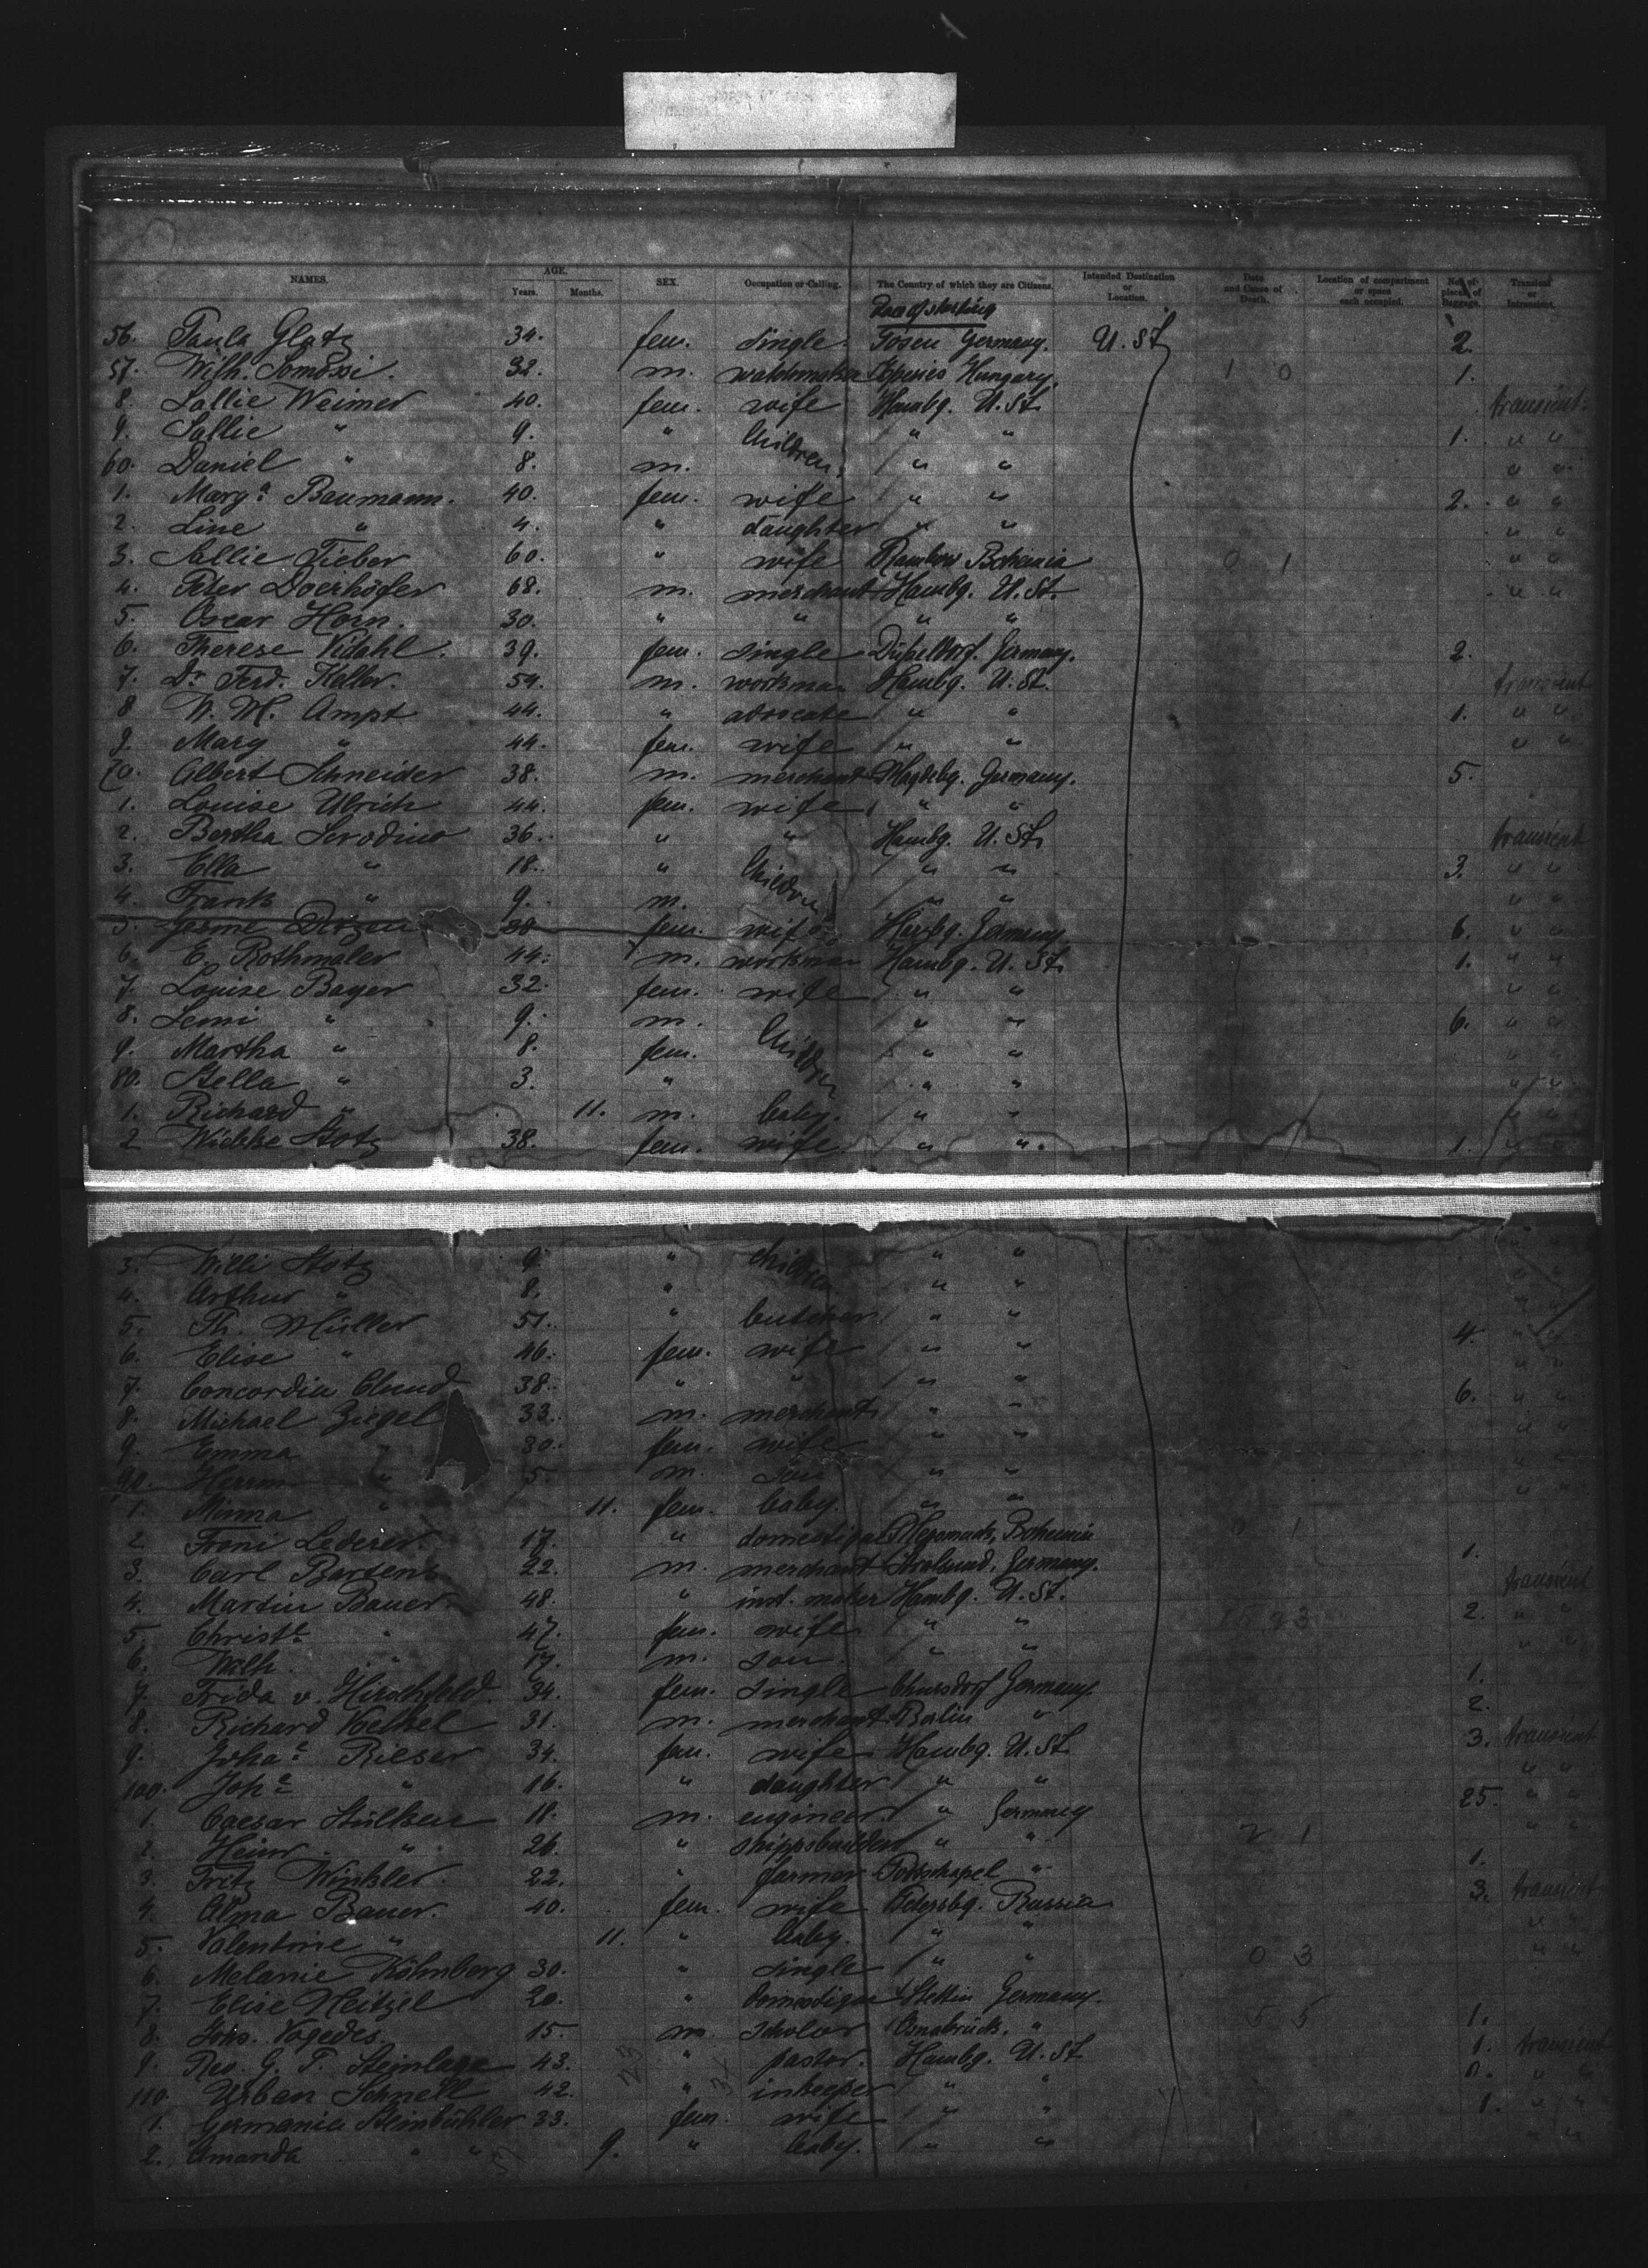 NAMES. AGE. Years. Months. SEX. Occupation or Calling. The Country of which they are Citizens. Intended Destination or Location. Date and Cause of Death. Location of compartment or space each occupied. No. of pieces of Baggage. Transient or Intransient.
56. Paula Glatz 34. fem. single Posen Germany. U. St. 2.
57. Wilh. Somossi. 32. m. watchmaker Eperies Hungary. 1 0 1.
8. Sallie Weimer 40. fem. wife Hambg. U. St. transient
9. Sallie " 9. " Children " " 1. " "
60. Daniel " 8. m. " " " "
1. Marg.a Baumann. 40. fem. wife " " 2. " "
2. Line " 4. " daughter " " " "
3. Sallie Fieber 60. " wife Bohemia 0 1 " "
4. Peter Doerhöfer 68. m. merchant Hambg. U. St. " "
5. Oscar Horn. 30. " " " "
6. Therese Vidahl. 39. fem. single Düsseldorf. Germany. 2.
7. Dr Ferd. Keller. 54. m. workman Hambg. U. St. transient
8 W. M. Ampt 44. " advocate " " 1. " "
9. Mary " 44. fem. wife " " " "
70. Albert Schneider 38. m. merchant Magdebg. Germany. 5.
1. Louise Ulrich 44. fem. wife " "
2. Bertha Serodino 36. " " Hambg. U. St. transient
3. Ella " 18. " Children " " 3. " "
4. Frank " 9. m. " " " "
5. 30 fem. wife Germany 6. " "
6. E. Rothmaler 44. m. workman Hambg. U. St. 1. " "
7. Louise Bayer 32. fem. wife " " " "
8. " 9. m. Children " " 6. " "
9. Martha " 8. fem. " " " "
80. Stella " 3. " " " " "
1. Richard " 11. m. baby. " " " "
2 Wiebke Stotz 38. fem. wife. " " 1. " "
3. Willi Stotz 9. " Children " " "
4. Arthur " 8. " " " " "
5. Th. Müller 51. " butcher " " 4. " "
6. Elise " 46. fem. wife " " " "
7. Concordia Clund 38. " " " " 6. " "
8. Michael Ziegel 33. m. merchant " " " "
9. Emma 30. fem. wife " " " "
90. Herrm " 5. m. son " " " "
1. Minna " 11. fem. baby. " "
2. Froni Lederer. 17. " Bohemia 0 1
3. Carl Bartens 22. m. merchant Stralsund, Germany. 1.
4. Martin Bauer. 48. " inst. maker Hambg. U. St. transient
5. Christe " 47. fem. wife " " 2. " "
6. Wilh. " 17. m. son. " " " "
7. Frida v. Hirschfeld. 34. fem. single Germany. 1.
8. Richard Voelkel 31. m. merchant Berlin " 2.
9. Joha.e Rieser 34. fem. wife Hambg. U. St. 3. transient
100. Joh.e " 16. " daughter " " " "
1. Caesar Stülken 18. m. engineer " Germany 25. " "
2. Heinr. " 26. " shippsbuilder " " 2 1 " "
3. Fritz Winkler. 22. " farmer " 1.
4. Alma Bauer. 40. fem. wife Petersbg. Russia 3. transient
5. Valentine " 11. " baby. " " " "
6. Melanie Köhnberg 30. " single " " 0 3 " "
7. Elise Neitzel 20. " Stettin Germany.
8. Johs. Vogedes. 15. m. scholar Osnabrück. " 5 5 1.
9. Rev. G. F. Steinlage 43. " pastor. Hambg. U. St 1. transient
110. Urban Schnell 42. " inkeeper " " " "
1. Germania Steinbühler 33. fem. wife " " 1. " "
2. Amanda " " 9. " baby. " " " "